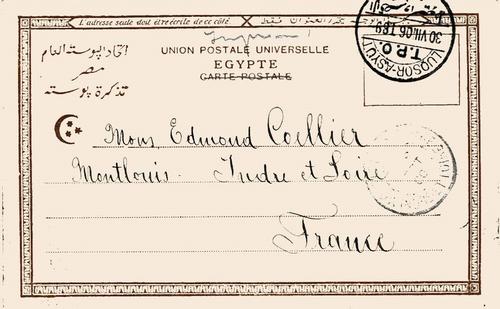 L'adresse seule doit être écrite de ce côté. يكتب العنوان فقط
UNION POSTALE UNIVERSELLE
EGYPTE
CARTE POSTALE
اتحاد البوستة العام
مصر
تذكرة بوستة
LUQSOR-ASYUT
T.P.O.
30 VIII 06
Mons Edmond Coellier
Montlouis. Indre et Loire
France